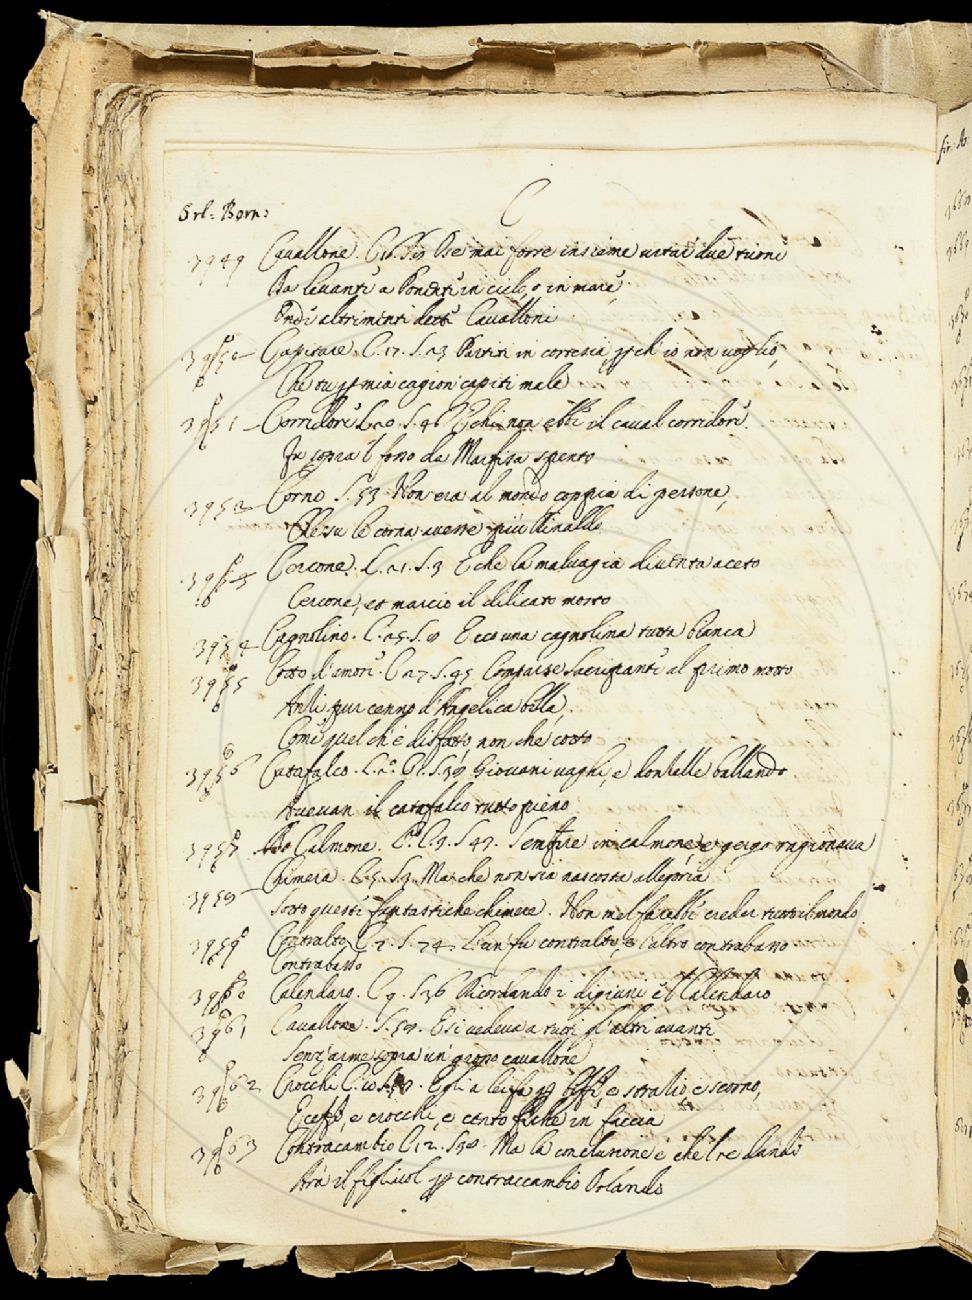 C
Orl. Bern:
3949 Cavallone. C.16. S.19 Se mai forre insieme urtar due tuoni
Da levante a Ponente in cielo, o in mare,
Ondi altrimenti detti Cavalloni
3950 Capitare. C.17. S.23 Partiti in cortesia, ch'io non voglio,
Che tu p mia cagion capiti male
3951 Corridore C.20. S.46 E chi non ebbe il caval corridore
In sopra'l fosso da Marfisa spento
3952 Corno S.53 Non era al mondo coppia di persone,
Che su le corna avesse più Rinaldo
3953 Cercone. C.21. S.3 E che la malvagia diventa aceto
Cercone, et marcio il dilicato mosto
3954 Cagnolino. C.25. S. Ecco una cagnolina tutta bianca
3955 Cotto d'amore. C.27 S.45 Comparse Sacripante al primo motto
Anzi pur cenno d'Angelica bella,
Come quel ch'è disfatto, non che cotto
3956 Catafalco. S.59 Giovani vaghi, e donzelle ballando
Avevan il catafalco tutto pieno
3957 Calmone. C.3. S.47. Sempre in calmone, e gergo ragionava
3958 Chimera. C.5. S.3. Ma che non sia nascosta allegoria
Sotto queste fantastiche chimere. Non mel farebbe creder tutto il mondo
3959 Contralto C.7. S.74. L'un fu contralto, e l'altro contrabasso
Contrabasso
3960 Calendaro. C.9. S.36 Ricordando i digiuni e'l Calendaro
3961 Cavallone. S.59. E si vedeva a tutti gl'altri avanti
Senz'arme sopra un grosso cavallone
3962 Crocchi C.10. Egli a beffe, e stratio, e scorno,
E ceffi, e crocchi, e cento fiche in faccia
3963 Contracambio C.12. S.58. Ma la conclusione è che'l re
Arà il figliuol p contraccambio Orlando